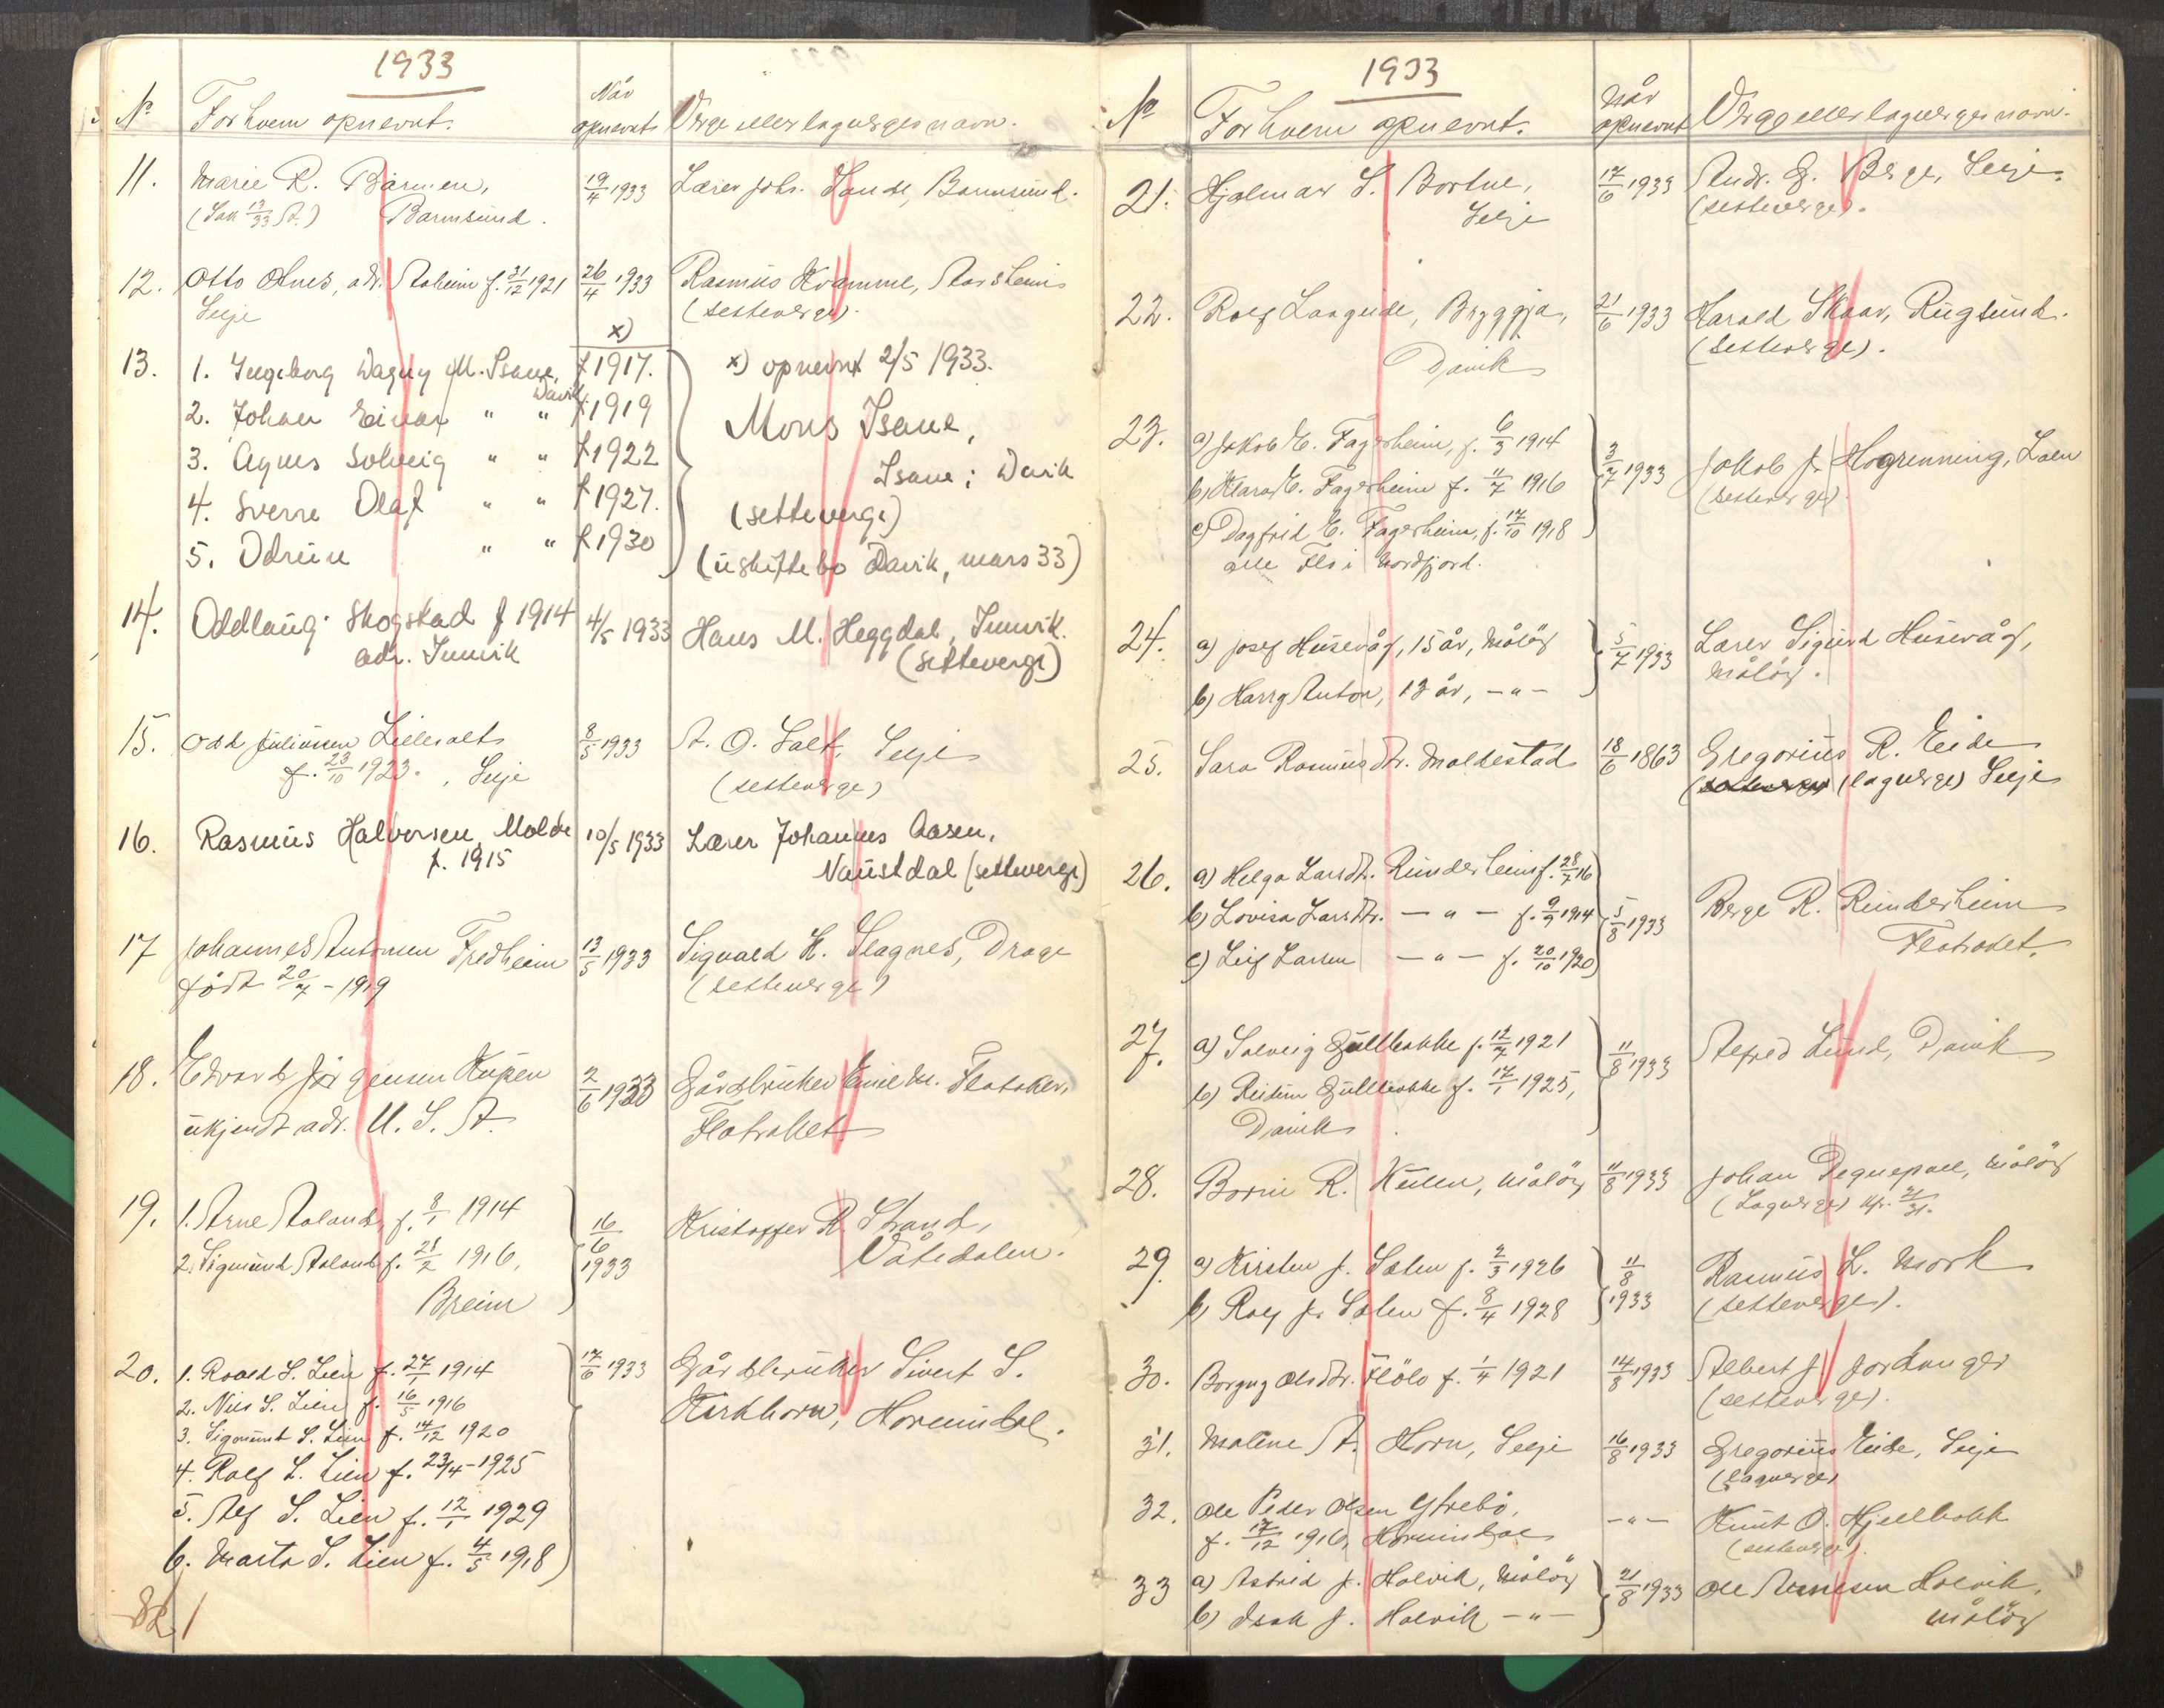 1933
No
For hvem opnevnt.
Når opnevnt
Verge eller lagverges navn.
11. Marie R. Barmen, 19/4 1933 Lærer Johs. Sande, Barmsund.
(Sak 13/33 A.) Barmsund.
12. Otto Ones, adr. Aaheim f. 31/12 1921 26/4 1933 Rasmus Kvamme, Aarsheim
Selje (setteverge).
x)
13. 1. Ingeborg Dagny M. Isane, f 1917. x) opnevnt 2/5 1933.
Davik
2. Johan Einar " " f 1919 Mons Isane,
3. Agnes Solveig " " f 1922 Isane; Davik
4. Sverre Olaf " " f 1927. (setteverge)
5. Odrun " " f 1930 (uskiftebo Davik, mars 33)
14. Oddlaug Skogstad f 1914 4/5 1933 Hans M. Heggdal, Innvik.
adr. Innvik (setteverge)
15. Odd Juliussen Lillesalt 8/5 1933 A. O. Salt, Selje
f. 23/10 1923. , Selje (setteverge)
16. Rasmus Halvorsen Molde 10/5 1933 Lærer Johannes Aasen,
f. 1915 Naustdal (setteverge)
17 Johannes Antonsen Fredheim 13/5 1933 Sigvald H. Slagnes, Drage
født 20/7 - 1919 (setteverge)
18. Edvard Jørgensen Kupen 2/6 1933 Gårdbruker Emil M. Flatraket,
ukjendt adr. U. S. A. Flatraket
19. 1. Arne Aaland, f. 8/1 1914 16/6 1933 Kristoffer R. Strand,
2. Sigmund Aaland f. 28/2 1916, Våtedalen.
Breim
20. 1. Roald S. Lien f. 27/1 1914 17/6 1933 Gårdbruker Sivert S.
2. Nils S. Lien f. 16/5 1916 Kirkhorn, Hornindal.
3. Sigmund S. Lien f. 14/12 1920
4. Rolf S. Lien f. 23/4 - 1925
5. Alf S. Lien f. 12/1 1929
6. Marta S. Lien f. 4/5 1918)
1933
No
For hvem opnevnt.
Når opnevnt
Verge eller lagverges navn.
21. Hjalmar S. Bortne, 17/6 1933 Andr. G. Berge, Selje.
Selje (setteverge).
22. Rolf Langede, Bryggja, 21/6 1933 Harald Skaar, Rugsund.
Davik (setteverge).
23. a) Jakob E. Fagerheim, f. 6/3 1914 3/7 1933 Jakob J. Hogrenning, Loen
b) Klara E. Fagerheim f. 11/7 1916 (setteverge)
c) Dagfrid E. Fagerheim, f. 17/10 1918
alle Flo i Nordfjord.
24. a) Josef Husevåg, 15 år, Måløy 5/7 1933 Lærer Sigurd Husevåg,
b) Harry Anton, 13 år, - " - Måløy.
25. Sara Rasmusdtr. Moldestad 18/6 1863 Gregorius R. Eide
(lagverge) Selje
26. a) Helga Larsdtr. Runderheim f. 28/7 16
b) Lovisa Larsdtr. - " - f. 9/9 1914 5/8 1933 Berge R. Runderheim
c) Leif Larsen - " - f. 20/10 1920) Flatraket.
27. a) Solveig Gullbakke f. 12/7 1921 11/8 1933 Alfred Lund, Davik
b) Reidun Gullbakke f. 17/1 1925,
Davik
28. Borni R. Kulen, Måløy 11/8 1933 Johan Degnepoll, Måløy
(Lagverge)
29. a) Kirsten J. Salen f. 2/3 1926 11/8 1933 Rasmus L. Mork
b) Rolf J. Salen f. 8/4 1928 (setteverge).
30. Borgny Olsdtr. Flölo f. 1/4 1921 14/8 1933 Albert J. Jordanger
(setteverge).
31. Maline A. Horn, Selje 16/8 1933 Gregorius Eide, Selje
(Lagverge)
32. Ole Peder Olsen Ytrebö, - " - Knut O. Hjellbakk
f. 17/12 1916, Hornindal (setteverge).
33 a) Astrid J. Holvik, Måløy 21/8 1933 Ole Holvik,
b) Isak J. Holvik - " - Måløy